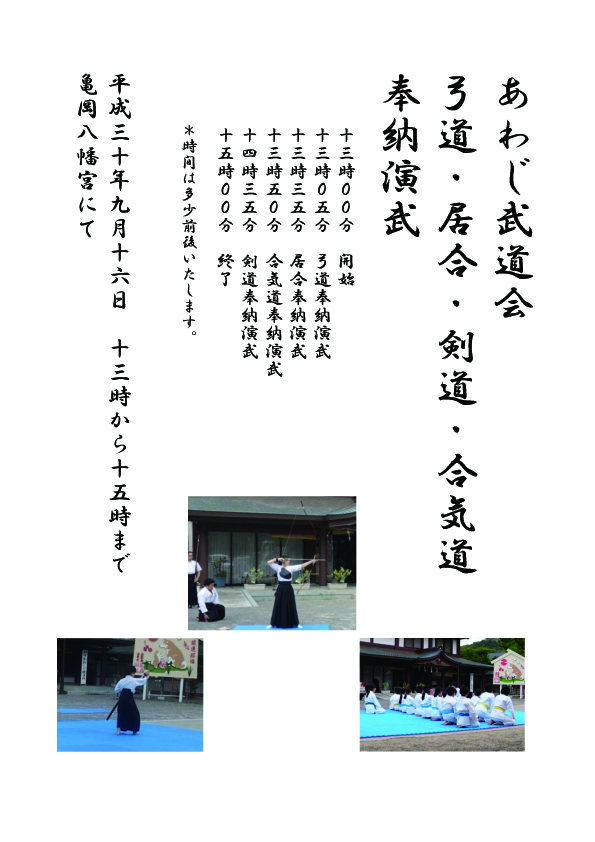 あわじ武道会
弓道・居合・剣道・合気道
奉納演武
十三時００分　開始
十三時０五分　弓道奉納演武
十三時三五分　居合奉納演武
十三時五０分　合気道奉納演武
十四時三五分　剣道奉納演武
十五時００分　終了
＊時間は多少前後いたします。
平成三十年九月十六日　十三時から十五時まで
亀岡八幡宮にて